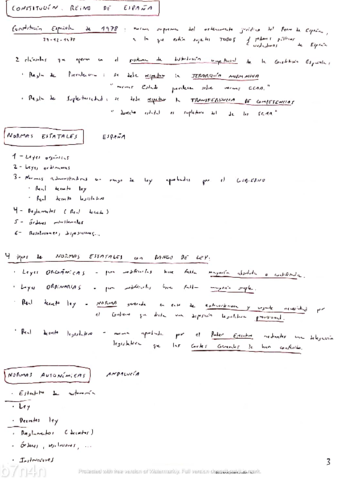 CONSTITUCIÓN: REINO DE ESPAÑA
Constitución Española de 1978: norma suprema del ordenamiento jurídico del Reino de España,
a la que están sujetos TODOS poderes públicos
ciudadanos de España
2 principios que operan en el de distribución de la Constitución Española:
- Regla de : se debe respetar la JERARQUÍA NORMATIVA
"normas Estado normas CCAA"
- Regla de Supletoriedad: se debe respetar la TRANSFERENCIA DE COMPETENCIAS
"derecho estatal es supletorio del de las CCAA"
NORMAS ESTATALES ESPAÑA
1 - Leyes orgánicas
2 - Leyes ordinarias
3 - Normas con rango de ley aprobadas por el GOBIERNO
· Real decreto ley
· Real decreto legislativo
4 - Reglamentos (Real decreto)
5 - Órdenes ministeriales
6 - Resoluciones, disposiciones...
4 tipos de NORMAS ESTATALES con RANGO DE LEY:
· Leyes ORGÁNICAS - para modificarlas hace falta mayoría absoluta
· Leyes ORDINARIAS - para modificarlas hace falta mayoría simple
· Real decreto ley - NORMA en caso de extraordinaria y urgente necesidad por
el Gobierno que dicta una disposición legislativa provisional
· Real decreto legislativo - norma aprobada por el Poder Ejecutivo mediante una delegación
legislativa que las Cortes Generales le han conferido
NORMAS AUTONÓMICAS ANDALUCÍA
· Estatuto de autonomía
· Ley
· Decreto ley
· Reglamentos (decretos)
· Órdenes, resoluciones, ...
· Instrucciones
3
b7n4n